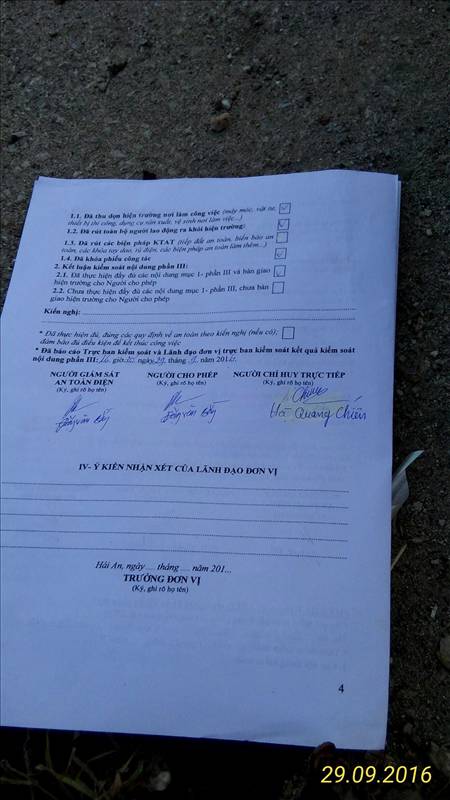 1.1. Đã thu dọn hiện trường nơi làm công việc (máy móc, vật tư,
thiết bị thi công, dụng cụ sản xuất, vệ sinh nơi làm việc...)
1.2. Đã rút toàn bộ người lao động ra khỏi hiện trường:
1.3. Đã rút các biện pháp KTAT (tiếp đất an toàn, biển báo an
toàn, các khóa tay dao, tủ điện, các biện pháp an toàn làm thêm...)
1.4. Đã khóa phiếu công tác
2. Kết luận kiểm soát nội dung phần III:
2.1. Đã thực hiện đầy đủ các nội dung mục 1- phần III và bàn giao
hiện trường cho Người cho phép
2.2. Chưa thực hiện đầy đủ các nội dung mục 1- phần III, chưa bàn
giao hiện trường cho Người cho phép
Kiến nghị:
* Đã thực hiện đủ, đúng các quy định về an toàn theo kiến nghị (nếu có);
đảm bảo đủ điều kiện để kết thúc công việc
* Đã báo cáo Trực ban kiểm soát và Lãnh đạo đơn vị trực ban kiểm soát kết quả kiểm soát
nội dung phần III: giờ ngày 29 tháng 9 năm 201
NGƯỜI GIÁM SÁT AN TOÀN ĐIỆN (Ký, ghi rõ họ tên)
NGƯỜI CHO PHÉP (Ký, ghi rõ họ tên)
NGƯỜI CHỈ HUY TRỰC TIẾP (Ký, ghi rõ họ tên)
Quang Chiến
IV- Ý KIẾN NHẬN XÉT CỦA LÃNH ĐẠO ĐƠN VỊ
Hải An, ngày .... tháng .... năm 201...
TRƯỞNG ĐƠN VỊ
(Ký, ghi rõ họ tên)
4
29.09.2016